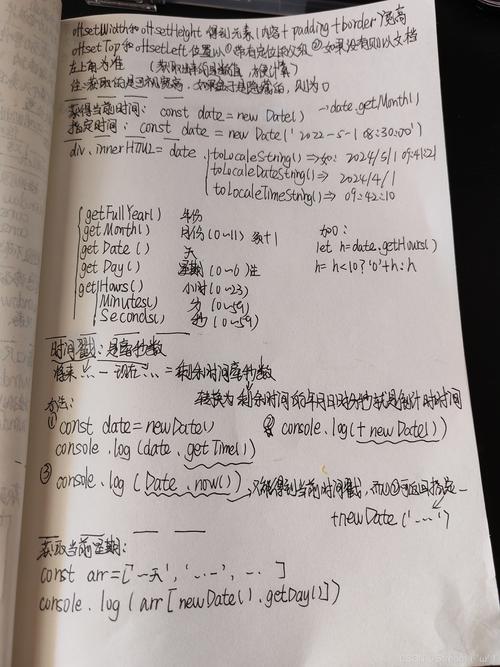 offsetWidth和offsetHeight 得到元素(内容+padding+border)宽高
offsetTop和offsetLeft 位置以①带有定位的父级②如果没有则以文档
左上角为准 (获取出来的是数值,方便计算)
注:获取的是可视宽高,如果盒子是隐藏的,则为0
获得当前时间: const date=new Date() →date.getMonth()
指定时间: const date = new Date('2022-5-1 08:30:00')
div.innerHTML = date .toLocaleString() ⇒如: 2024/5/1 09:41:21
toLocaleDateString()⇒ 2024/4/1
toLocaleTimeString()⇒ 09:42:10
getFullYear() 年份
getMonth() 月份(0~11) 要+1
getDate() 天
getDay() 星期(0~6)
getHours() 小时(0~23)
Minutes() 分(0~59)
Seconds() 秒(0~59)
加0:
let h=date.getHours()
h=h<10?'0'+h:h
时间戳:是毫秒数
将来... — 现在... = 剩余时间毫秒数
转换为剩余时间的年月日时分秒就是倒计时时间
方法:
① const date=new Date()
console.log(date.getTime())
② console.log(+new Date())
③ console.log(Date.now()),只能得到当前时间戳,而①②可返回指定
+new Date('......')
获取当前星期:
const arr=['一天','...',...]
console.log(arr[new Date().getDay()])